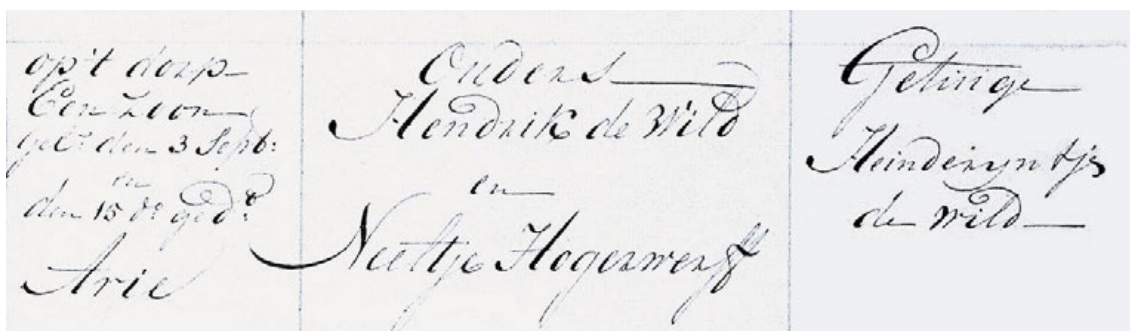 op't dorp
Een Zoon
geb: den 3 Septb:
en
den 15 do ged:
Arie
Ouders
Hendrik de Wild
en
Neeltje Hogerwerff
Getuige
Heinderyntje
de Wild